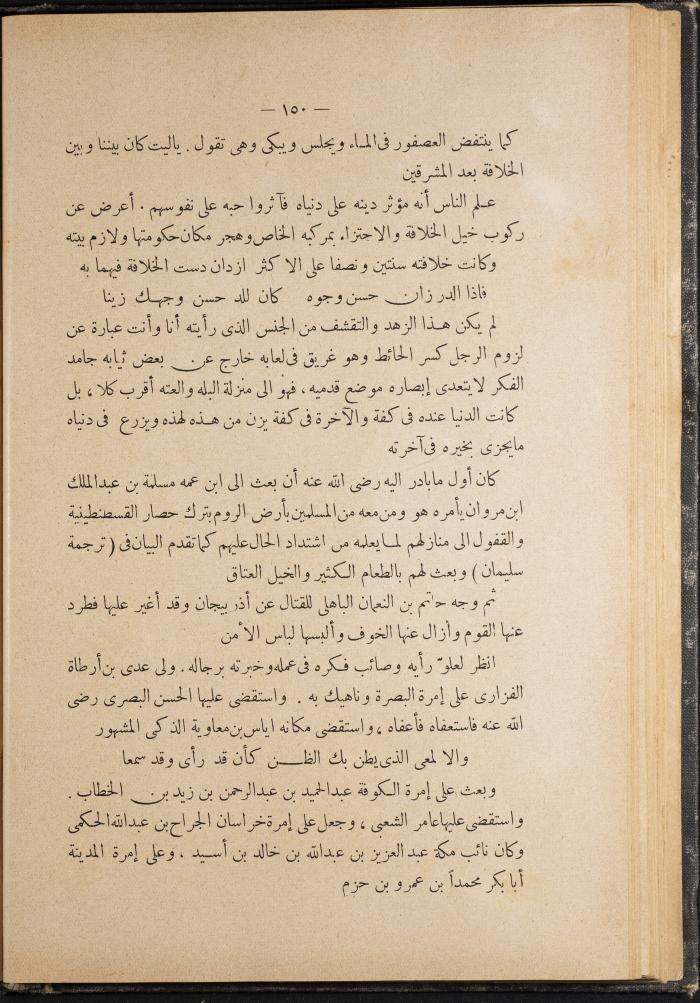 — ١٥٠ —
كما ينتفض العصفور فى المـاء ويجلس ويبكى وهى تقول . ياليت كان بيننا وبين
الخلافة بعد المشرقين
عـلم الناس أنه مؤثر دينه على دنياه فآثروا حبه على نفوسهم . أعرض عن
ركوب خيل الخلافة والاجتزاء بمركبه الخاص وهجر مكان حكومتها ولازم بيته
وكانت خلافته سنتين ونصفا على الاكثر ازدان دست الخلافة فيهما به
فاذا الدر زان حسن وجوه كان للدر حسن وجهـك زينا
لم يكن هـذا الزهد والتقشف من الجنس الذى رأيته أنا وأنت عبارة عن
لزوم الرجل كسر الحائط وهو غريق فى لعابه خارج عن بعض ثيابه جامد
الفكر لا يتعدى إبصاره موضع قدميه ، فهو الى منزلة البله والعته أقرب كلا ، بل
كانت الدنيا عنده فى كفة والآخرة فى كفة يزن من هـذه لهذه ويزرع فى دنياه
مايجزى بخيره فى آخرته
كان أول مابادر اليه رضى الله عنه أن بعث الى ابن عمه مسلمة بن عبدالملك
ابن مروان يأمره هو ومن معه من المسلمين بأرض الروم بترك حصار القسطنطينية
والقفول الى منازلهم لمـا يعلمه من اشتداد الحال عليهم كما تقدم البيان فى ( ترجمة
سليمان ) وبعث لهم بالطعام الـكثير والخيل العتاق
ثم وجه حاتم بن النعمان الباهلى للقتال عن أذر بيجان وقد أغير عليها فطرد
عنها القوم وأزال عنها الخوف وألبسها لباس الأمن
انظر لعلوّ رأيه وصائب فـكره فى عمله وخبرته برجاله . ولى عدى بن أرطاة
الفزارى على إمرة البصرة وناهيك به . واستقضى عليها الحسن البصرى رضى
الله عنه فاستعفاه فأعفاه ، واستقضى مكانه اياس بن معاوية الذكى المشهور
والالمعى الذى يظن بك الظـن كأن قد رأى وقد سمعا
وبعث على إمرة الـكوفة عبدالحميد بن عبدالرحمن بن زيد بن الخطاب .
واستقضى عليها عامر الشعبى ، وجعل على إمرة خراسان الجراح بن عبدالله الحـكمى
وكان نائب مكة عبدالعزيز بن عبدالله بن خالد بن أسـيد ، وعلى إمرة المدينة
أبا بكر محمداً بن عمرو بن حزم